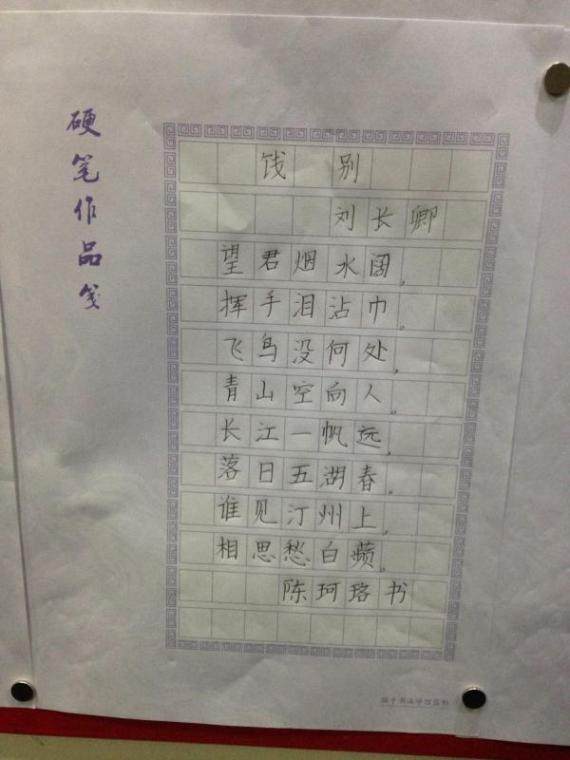 硬笔作品笺
饯别
刘长卿
望君烟水阔，
挥手泪沾巾。
飞鸟没何处，
青山空向人。
长江一帆远，
落日五湖春。
谁见汀州上，
相思愁白蘋。
陈珂珞书